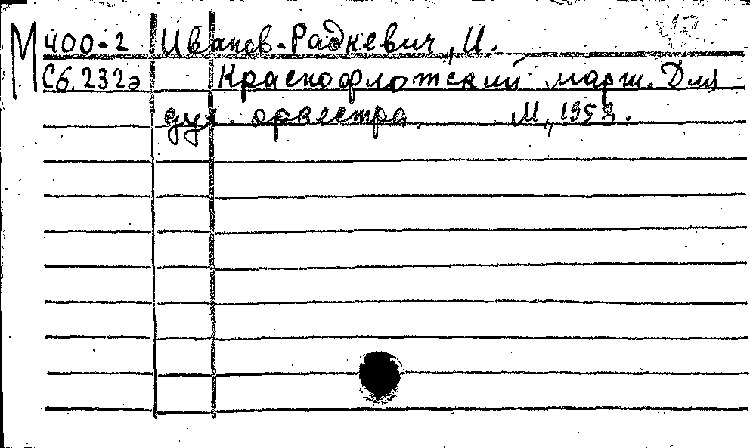 М400-2 Иванов-Радкевич, И.
Сб.232э Краснофлотский марш. Для
дух. оркестра. М., 1953.